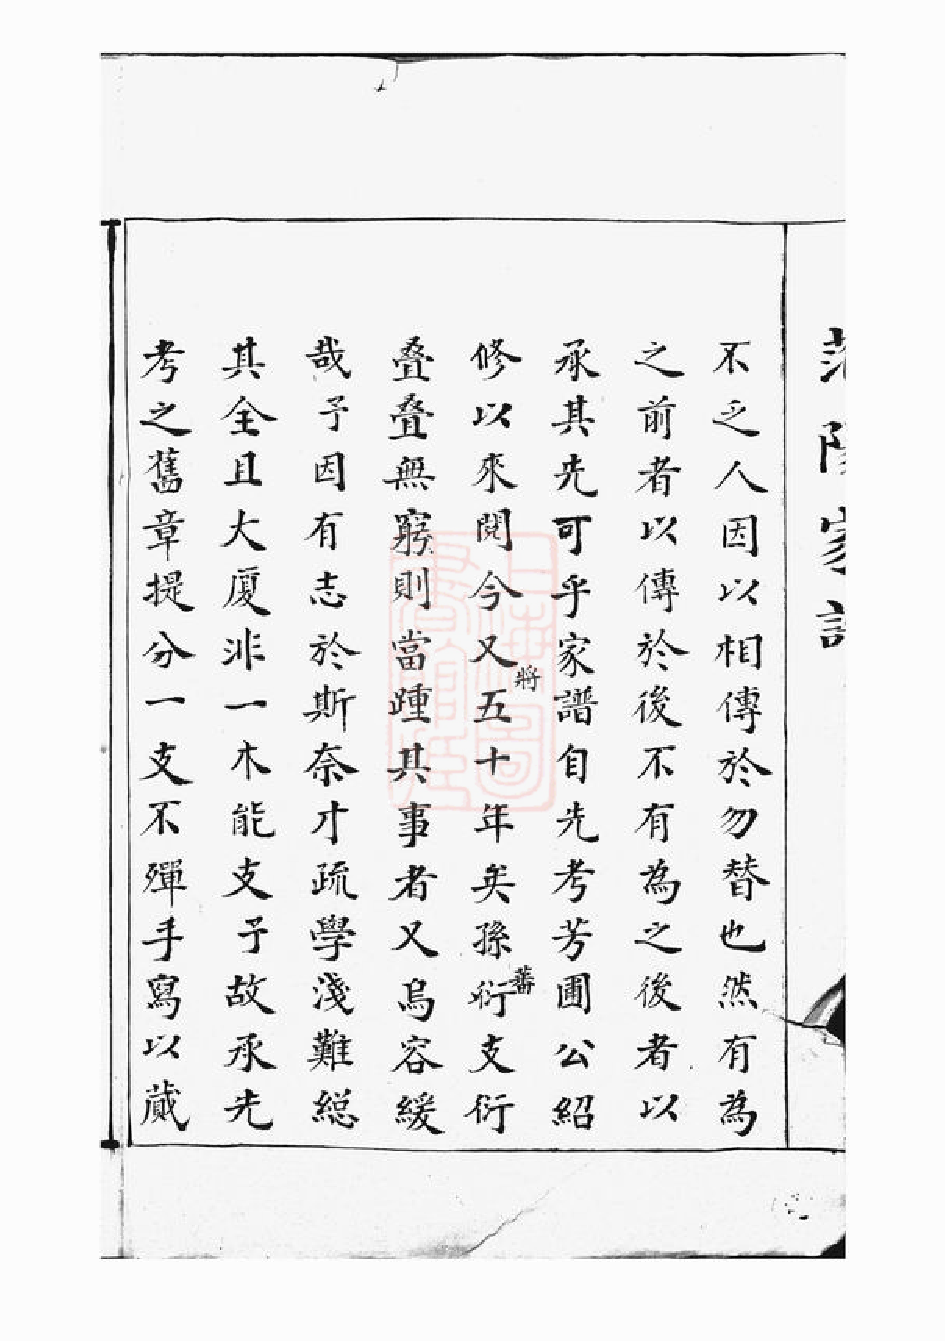 范陽家譜
不乏人因以相傳於勿替也然有為
之前者以傳於後不有為之後者以
承其先可乎家譜自先考芳圃公紹
修以來閱今又將五十年矣孫衍蕃支衍
疊疊無窮則當踵其事者又烏容緩
哉予因有志於斯奈才疏學淺難總
其全且大廈非一木能支予故承先
考之舊章提分一支不殫手寫以蔵